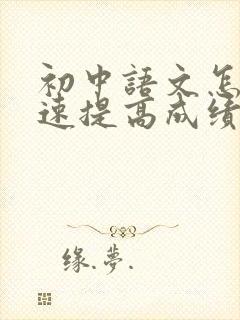 初中語文怎
速提高成績
缘.夢.